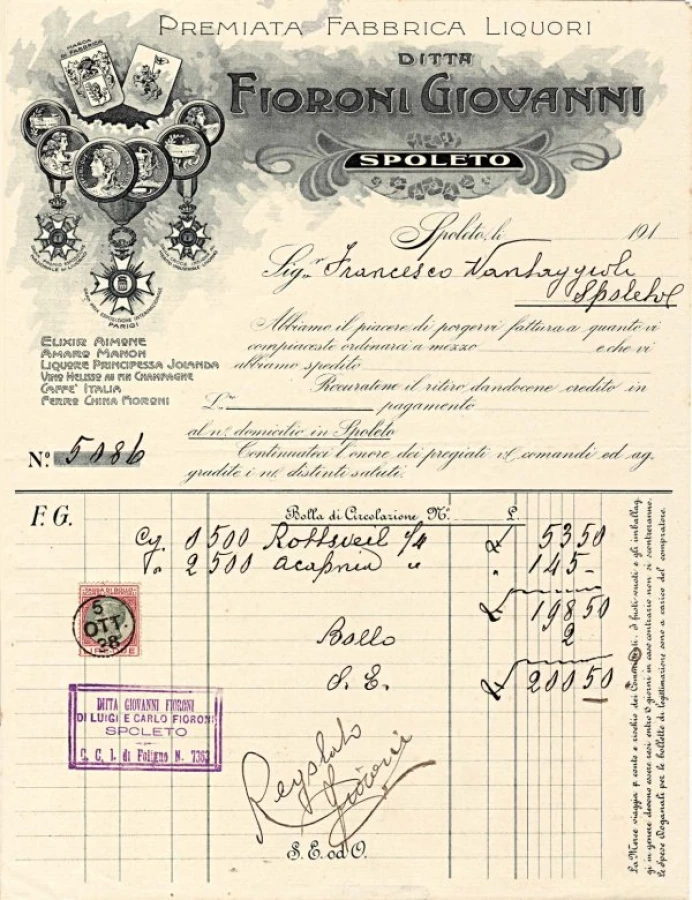 PREMIATA FABBRICA LIQUORI
DITTA
FIORONI GIOVANNI
SPOLETO
MARCA DI FABBRICA
PARIGI
Spoleto, li 191
Sig.r Francesco Vantaggioli
Spoleto
Abbiamo il piacere di porgervi fattura a quanto vi
compiaceste ordinarci a mezzo e che vi
abbiamo spedito
Procuratene il ritiro dandocene credito in
L. pagamento
al n. domicilio in Spoleto
Continuateci l'onore dei pregiati v. comandi ed ag.
gradite i n. distinti saluti.
ELIXIR AIMONE
AMARO MANON
LIQUORE PRINCIPESSA JOLANDA
VINO MELISSO AU FIN CHAMPAGNE
CAFFE' ITALIA
FERRO CHINA MORONI
N.º 5086
F. G. Bolla di Circolazione N.º L.
Cg. 0 500 Rottsveil 5350
2 500 Acapnia " " 145-
198 50
Bollo 2
S. E. 200 50
5
OTT.
28
DITTA GIOVANNI FIORONI
DI LUIGI E CARLO FIORONI
SPOLETO
C. C. I. di Foligno N. 7367
Fioroni
S. E. od O.
La Merce viaggia p. conto e rischio dei Committ. i fusti vuoti e gli imballag
gi in genere devono essere resi entro giorni in caso contrario non si sconteranno.
Le spese Doganali per le bollette di legittimazione sono a carico del compratore.